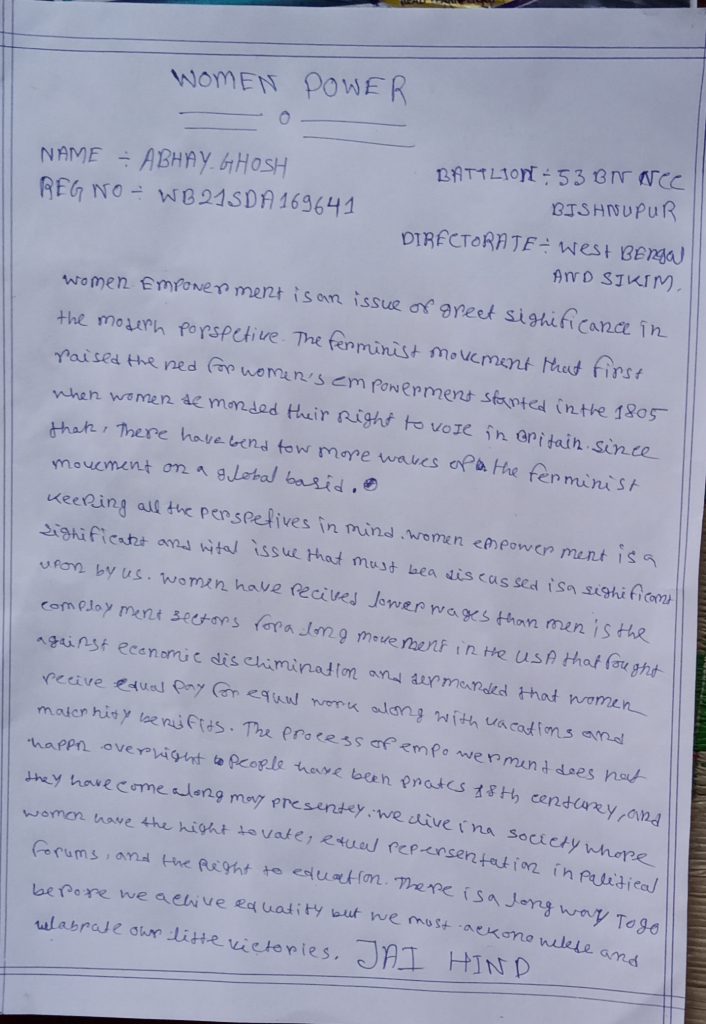 WOMEN POWER
O
NAME ÷ ABHAY GHOSH
BATTLION ÷ 53 BN NCC
REG NO ÷ WB21SDA169641
BISHNUPUR
DIRECTORATE ÷ West BEngal
AND SIKIM.
women Empower ment is an issue of greet significance in
the modern porspetive. The ferminist movement that first
raised the ned for women's empowerment started in the 1805
when women demonded their Right to vote in Britain. Since
that, There have bend tow more waves of the ferminist
movement on a glebal basid.
Keeping all the perspetives in mind. women empower ment is a
significant and vital issue that must bea discassed is a significant
upon by us. women have recived lower wages than men is the
comploy ment sectors for a long movement in the USA that fought
against economic dis chimination and dermanded that women
recive equal pay for equal work along with vacations and
materhity benifits. The process of empo werment does not
happn overnight people have been prates 18th centurey, and
they have come along may presentey. we live in a society whore
women have the hight to vate, equal repersentation in palitical
forums, and the Right to eduation. There is a long way To go
before we achive equatity but we must ackono welede and
welabrate our litte victories. JAI HIND